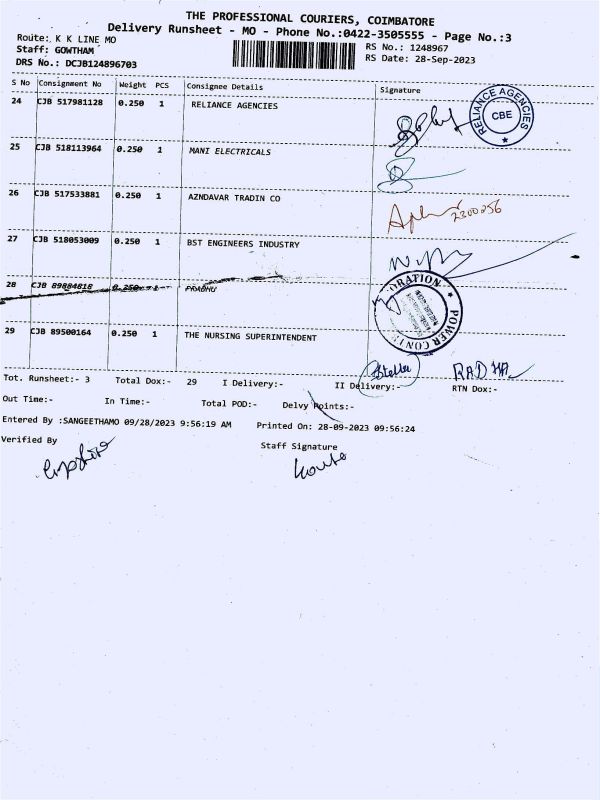 THE PROFESSIONAL COURIERS, COIMBATORE
Delivery Runsheet - MO - Phone No.:0422-3505555 - Page No.:3
Route: K K LINE MO
RS No.: 1248967
Staff: GOWTHAM
RS Date: 28-Sep-2023
DRS No.: DCJB124896703
S No Consignment No Weight PCS Consignee Details Signature
24 CJB 517981128 0.250 1 RELIANCE AGENCIES
RELIANCE AGENCIES
CBE
25 CJB 518113964 0.250 1 MANI ELECTRICALS
26 CJB 517533881 0.250 1 AZNDAVAR TRADIN CO
2300256
27 CJB 518053009 0.250 1 BST ENGINEERS INDUSTRY
28 CJB 89884818 0.250 1 PRABHU
29 CJB 89500164 0.250 1 THE NURSING SUPERINTENDENT
RADHA
Tot. Runsheet:- 3 Total Dox:- 29 I Delivery:- II Delivery:- RTN Dox:-
Out Time:- In Time:- Total POD:- Delvy Points:-
Entered By :SANGEETHAMO 09/28/2023 9:56:19 AM Printed On: 28-09-2023 09:56:24
Verified By Staff Signature